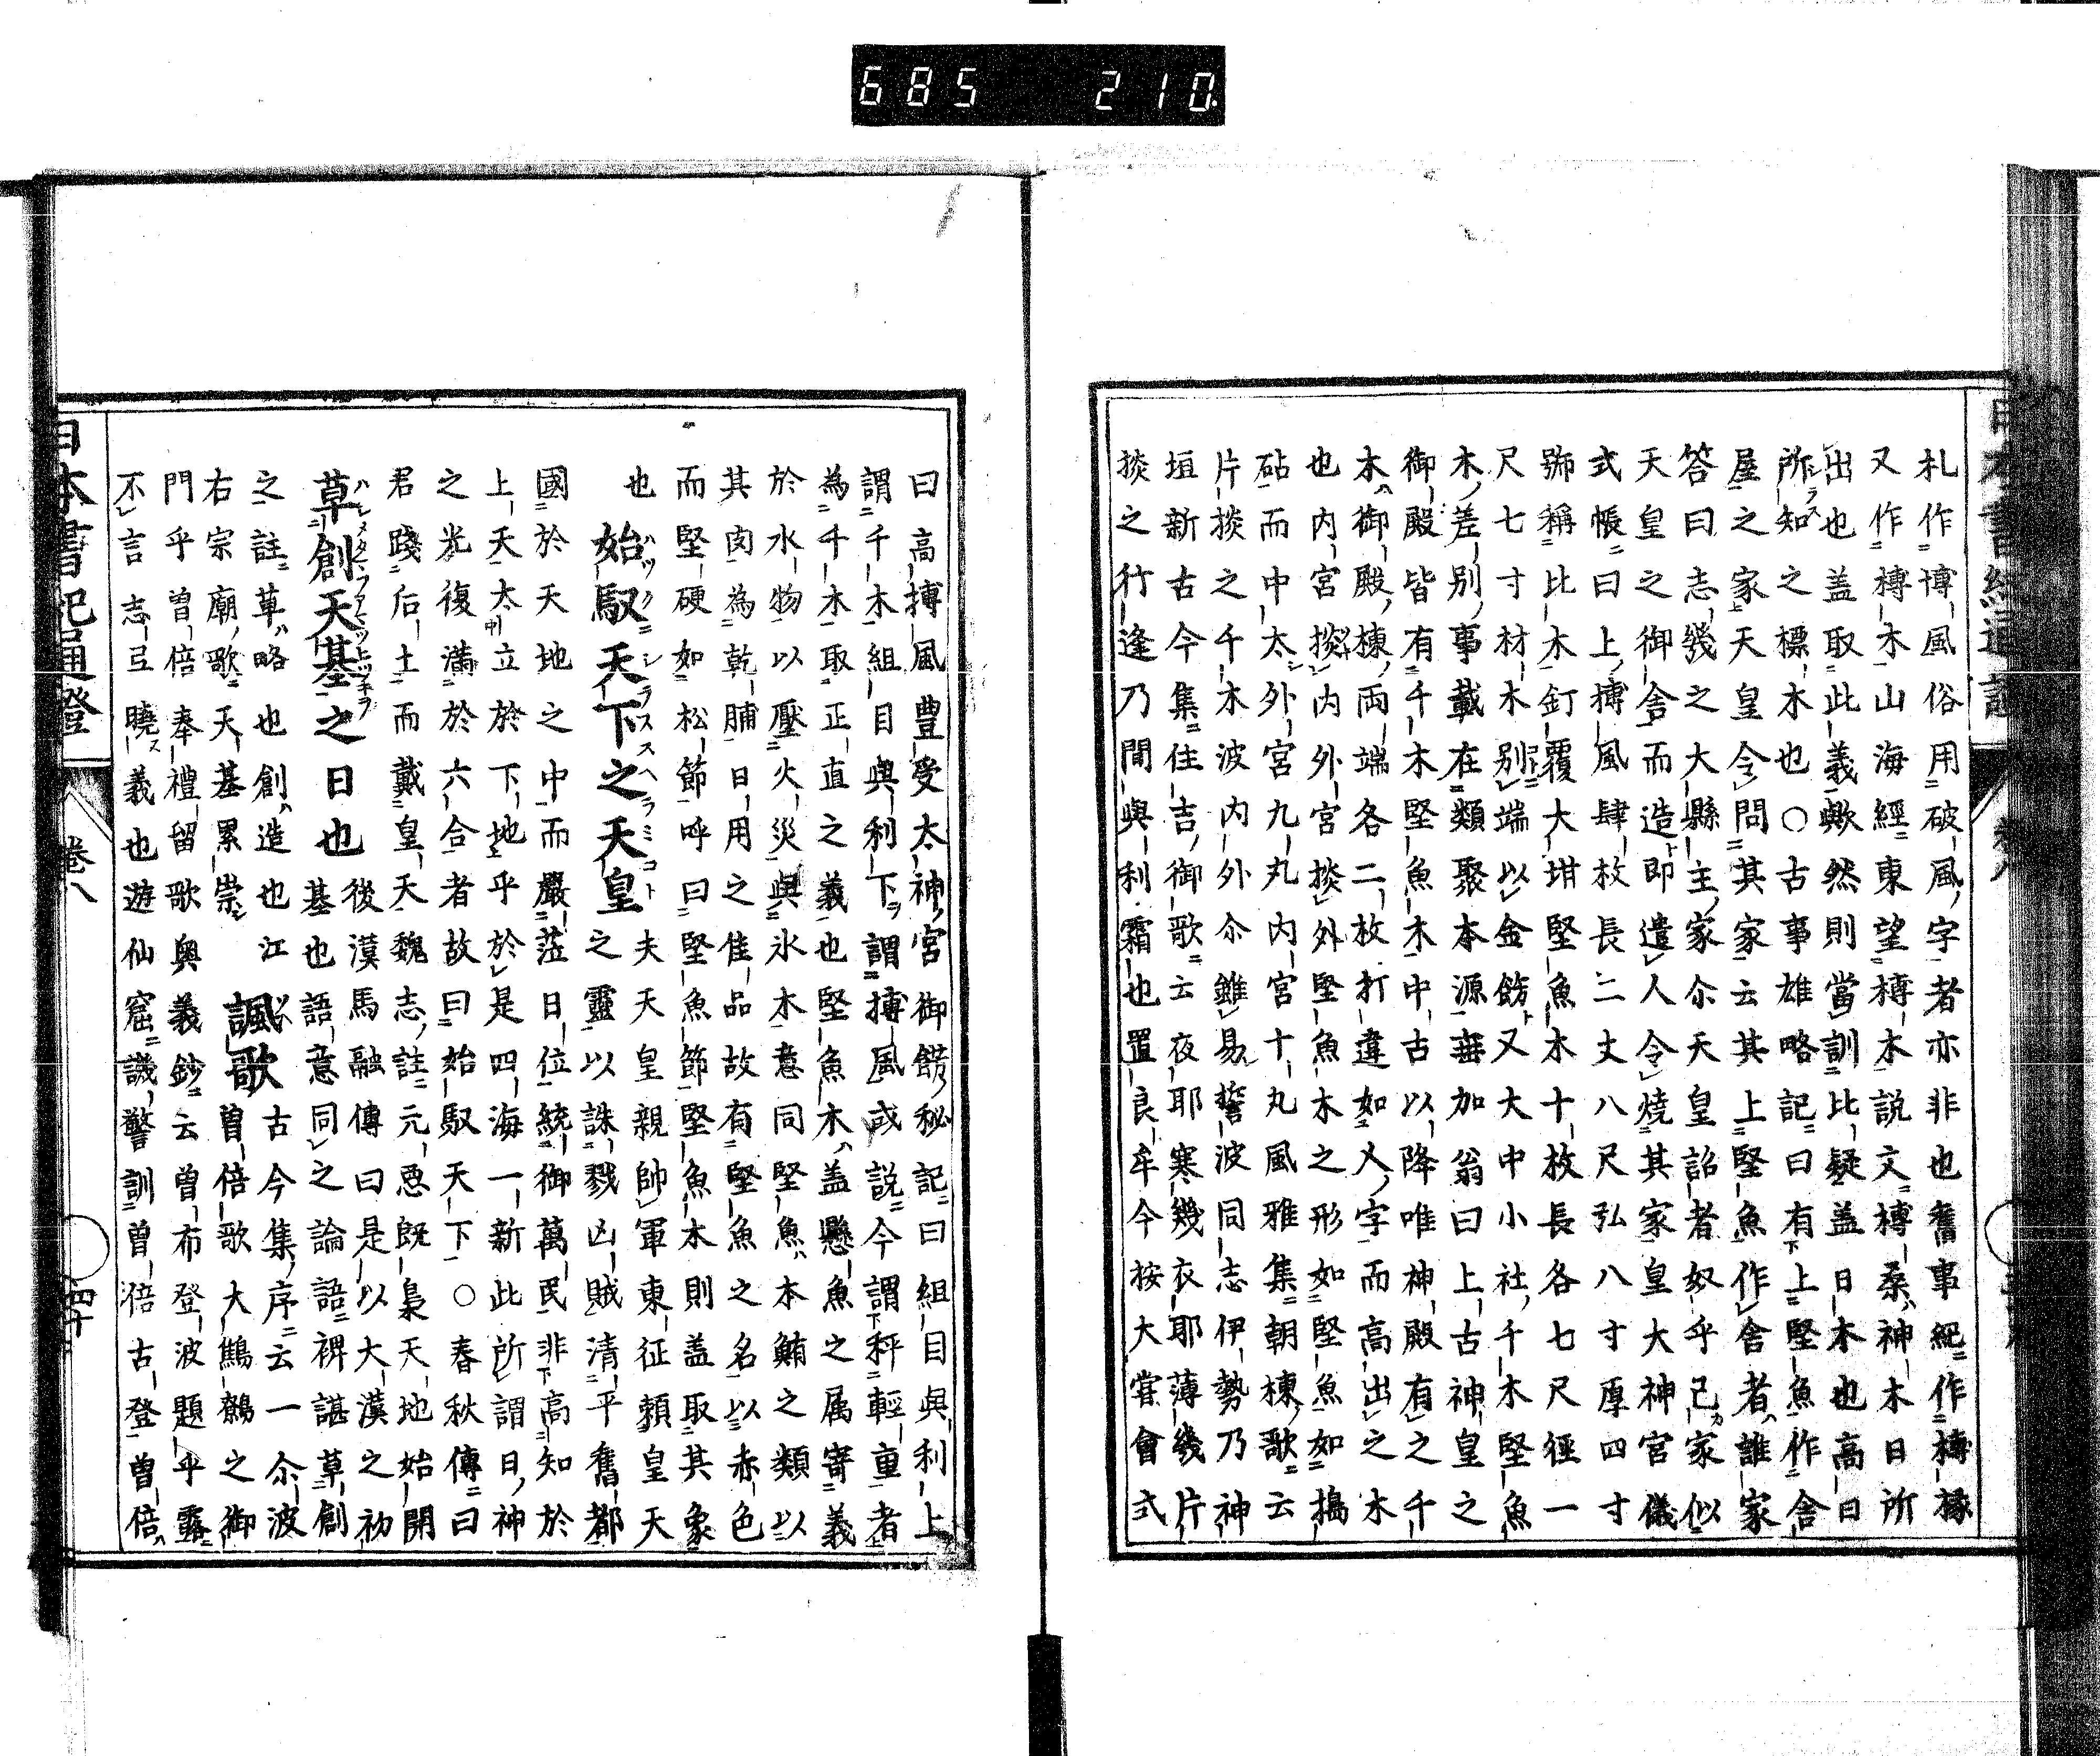 685 210
札作博風俗用破風字者亦非也舊事紀作榑椽
又作榑木山海經東望榑木說文榑桑神木日所
出也盖取此義歟然則當訓比疑盖日木也高日
所知之標木也○古事雄略記曰有上堅魚作舎
屋之家天皇令問其家云其上堅魚作舎者誰家
答曰志幾之大縣主家尒天皇詔者奴乎己家似
天皇之御舎而造即遣人令燒其家皇大神宮儀
式帳曰上搏風肆枚長二丈八尺弘八寸厚四寸
號稱比木釘覆大坩堅魚木十枚長各七尺徑一
尺七寸材木別端以金餝又大中小社千木堅魚
木差別事載在類聚本源莊加翁曰上古神皇之
御殿皆有千木堅魚木中古以降唯神殿有之千
木御殿棟兩端各二枚打違如乂字而高出之木
也内宮掞内外宮掞外堅魚木之形如堅魚如搗
砧而中太外宮九丸内宮十丸風雅集朝棟歌云
片掞之千木波内外尒雖易誓波同志伊勢乃神
垣新古今集住吉御歌云夜耶寒幾衣耶薄幾片
掞之行逢乃間與利霜也置良牟今按大甞會式
曰高搏風豊受太神宮御餝秘記曰組目與利上
謂千木組目與利下謂搏風或説今謂秤輕重者
為千木取正直之義也堅魚木盖懸魚之属寄義
於水物以壓火災與氷木意同堅魚本鮪之類以
其肉為乾脯日用之佳品故有堅魚之名以赤色
而堅硬如松節呼曰堅魚節堅魚木則盖取其象
也
始馭天下之天皇 夫天皇親帥軍東征頼皇天之靈以誅戮凶賊清平舊都
國於天地之中而嚴蒞日位統御萬民非高知於
上天太立於下地乎於是四海一新此所謂日神
之光復滿於六合者故曰始馭天下○春秋傳曰
君踐后土而戴皇天魏志註元惡既梟天地始開
草創天基之日也 後漢馬融傳曰是以大漢之初基也語意同之論語裨諶草創
之註草略也創造也江古今集序云一尒波
右宗廟歌天基累崇 諷歌 曽倍歌大鷦鷯之御
門乎曽倍奉禮留歌奥義鈔云曽布登波題乎露
不言志弖曉義也遊仙窟譏警訓曽倍古登曽倍
日本書紀通證 卷八 四十